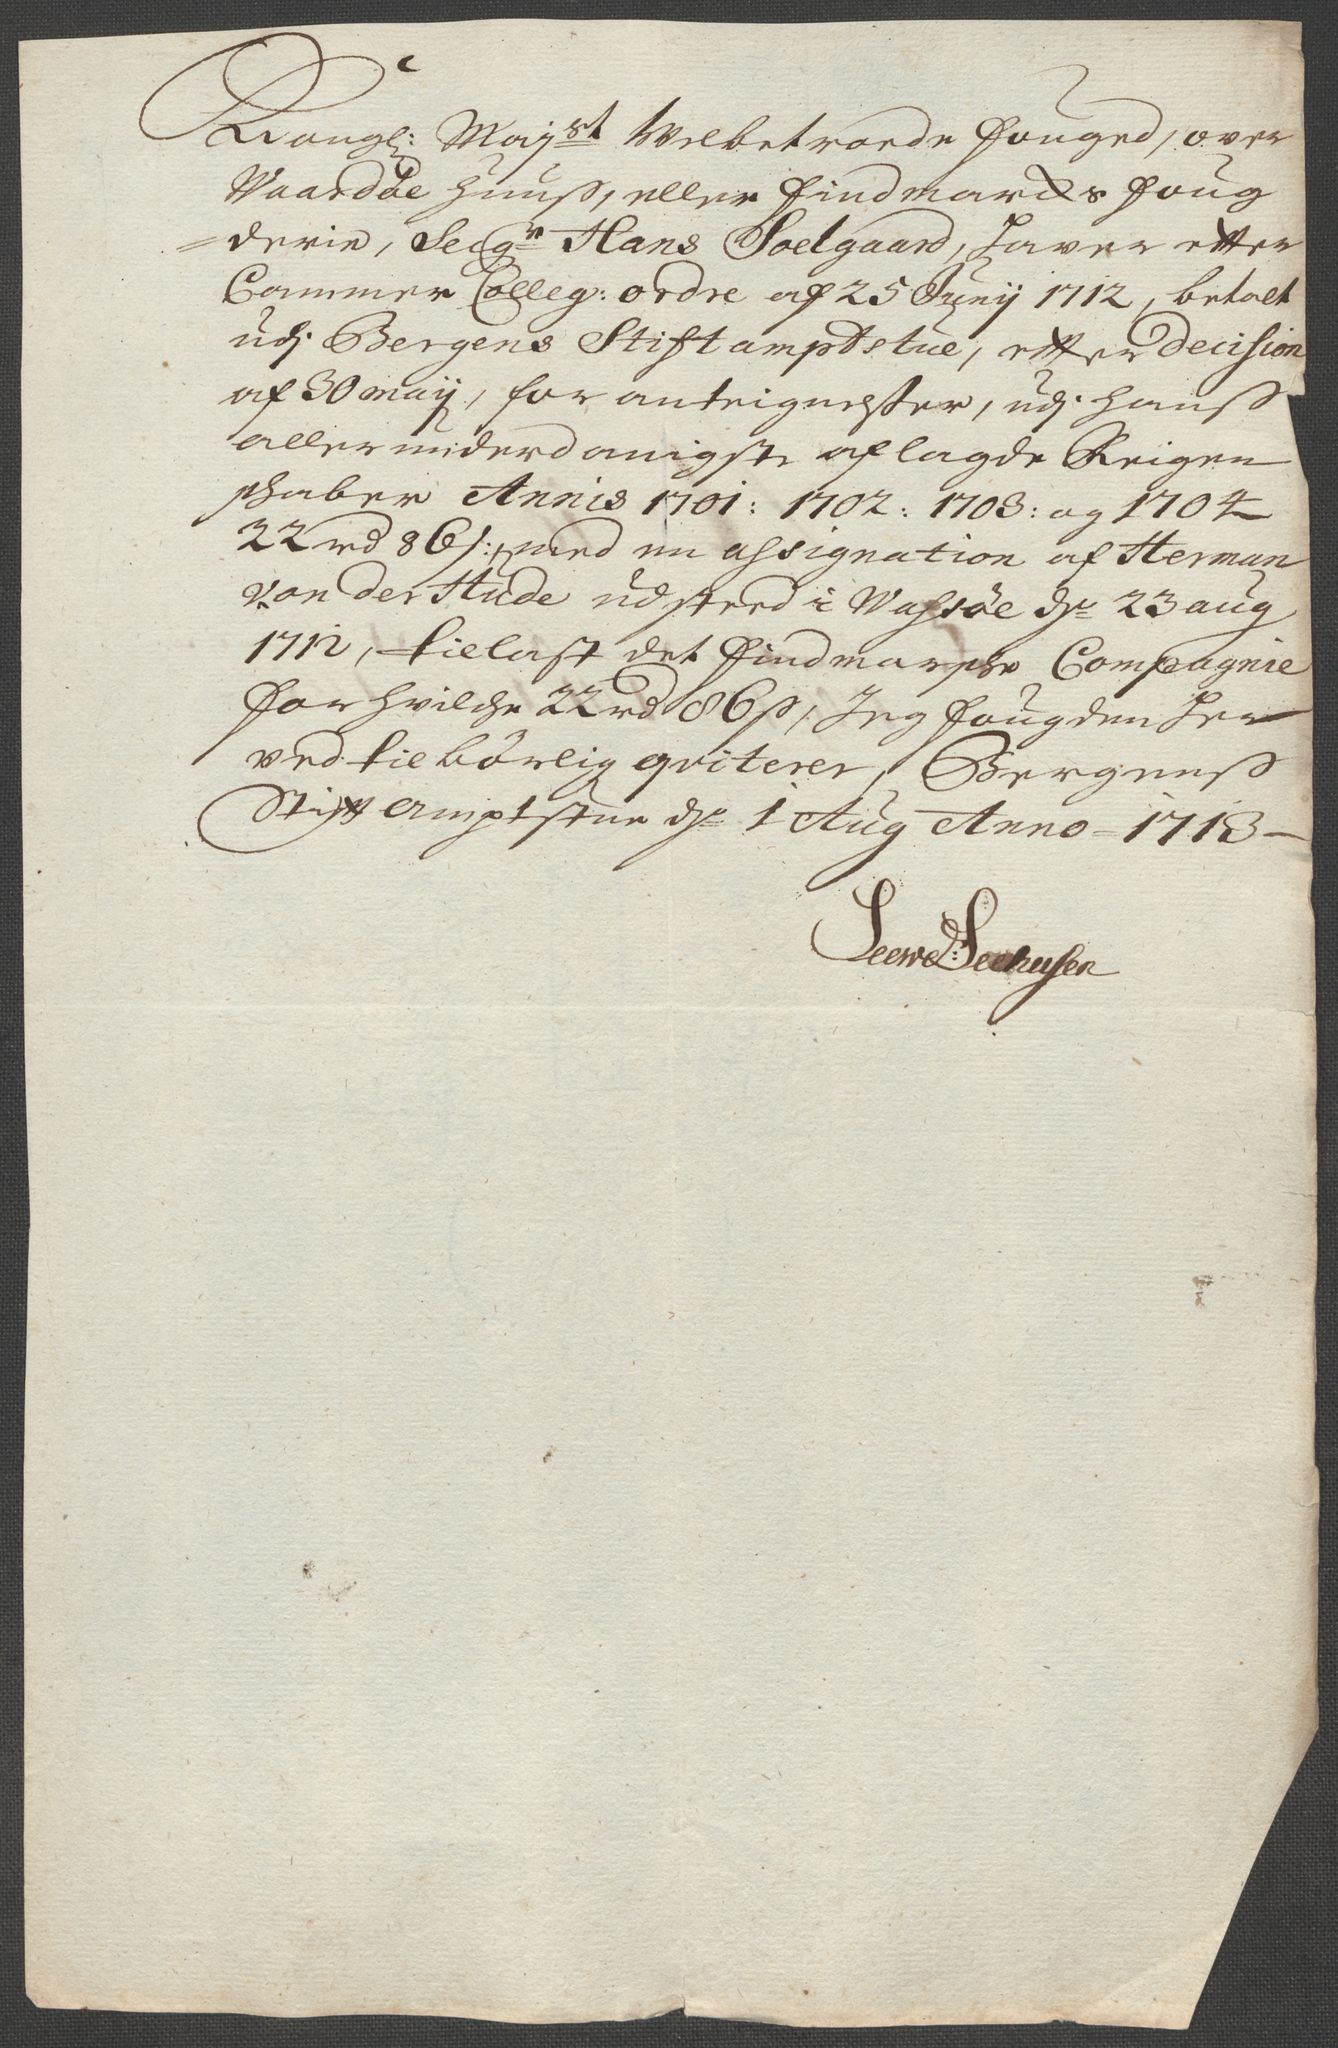 Kongl: Mayst Velbetroede fouged, over
Waardøe Huuss, eller findmarckes foug
=derie, Seigr Hans Soelgaard, haver etter
Cammer Colleg: ordre af 25 Junij 1712, betalt
udj Bergens Stiftamptstue, etter decision
af 30 maij, for anteignelsser, udj hanss
allerunderdanigste aflagde Reigen
skaber Annis 1701: 1702: 1703: og 1704
22 rd 86 s: med en assignation af Herman
von der Hude udsteed i Wassøe de 23 aug
1712, til last det findmarske Compagnie
for hvilche 22 rd 86 s, Jeg fougden her
ved tilbørlig qviterer, Bergenss
Stiftamptstue de 1 Aug Anno 1713
Seewe: Seehusen